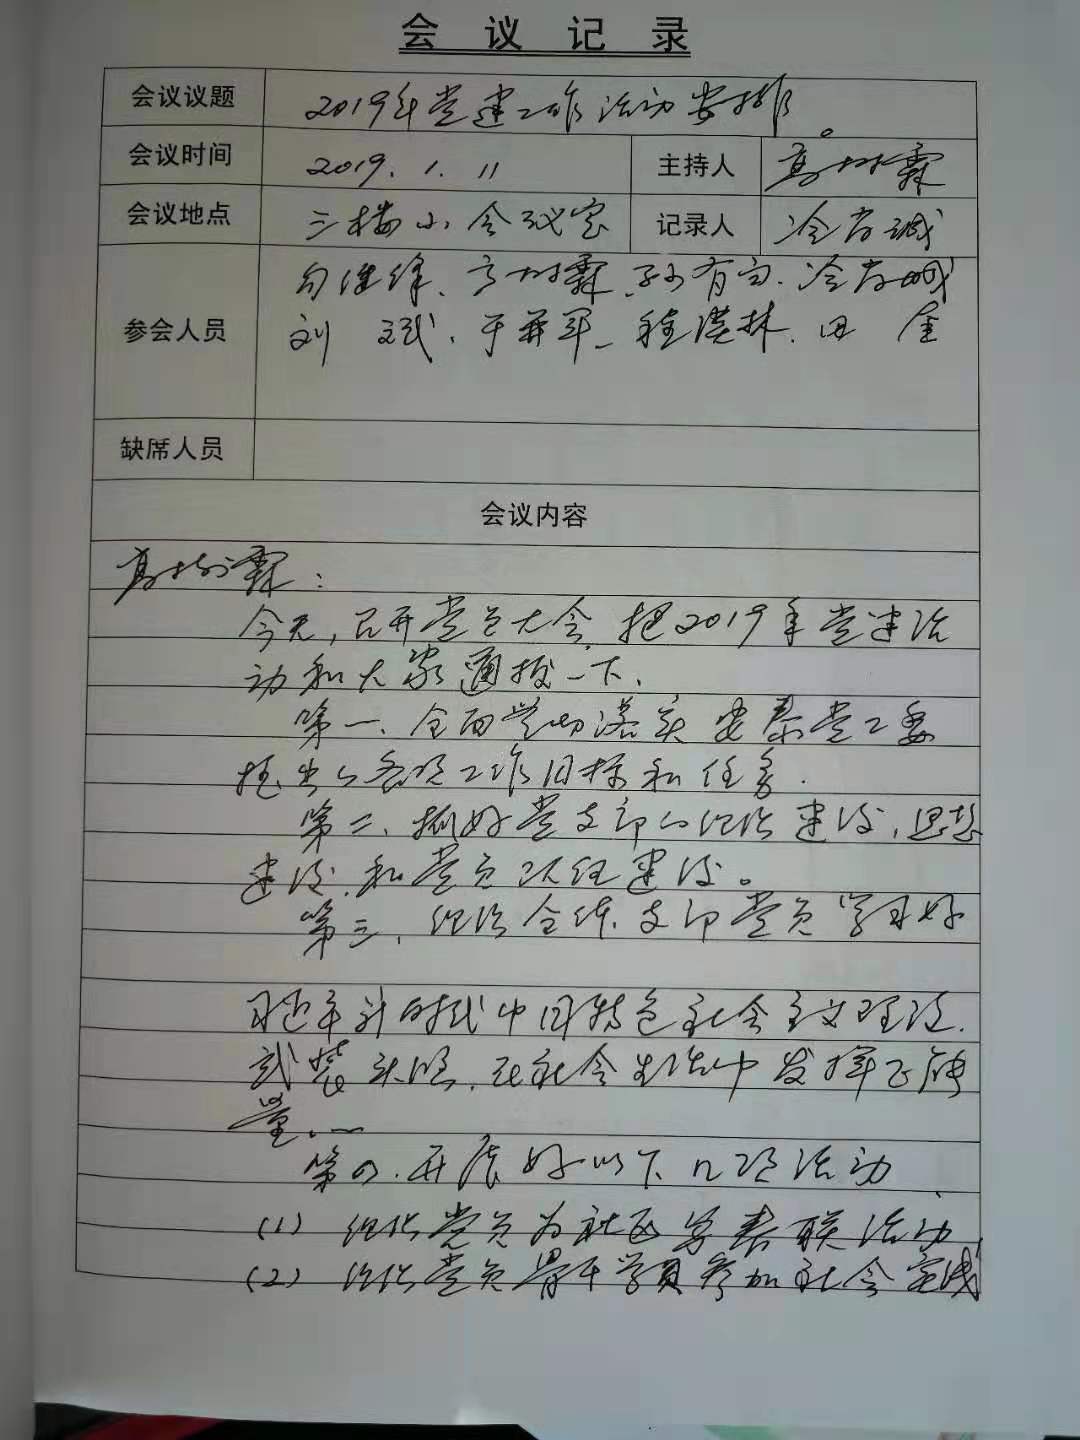 会议记录
会议议题 2019年党建工作活动安排。
会议时间 2019.1.11 主持人 高树霖
会议地点 三楼小会议室 记录人 冷存诚
参会人员 高树霖、孙有 冷存诚
刘斌、于 程洪林、田金
缺席人员
会议内容
高树霖：
今天,召开党员大会,把2019年党建活
动和大家通报一下.
第一、全面学习落实 党工委
提出的各项工作目标和任务.
第二、抓好党支部的组织建设,思想
建设,和党员队伍建设。
第三、组织全体支部党员学习好
习近平新时代中国特色社会主义理论.
武装头脑,在社会生活中发挥正能
量.
第四.开展好以下几项活动
(1) 组织党员为社区写春联活动
(2) 组织党员骨干学员参加社会实践